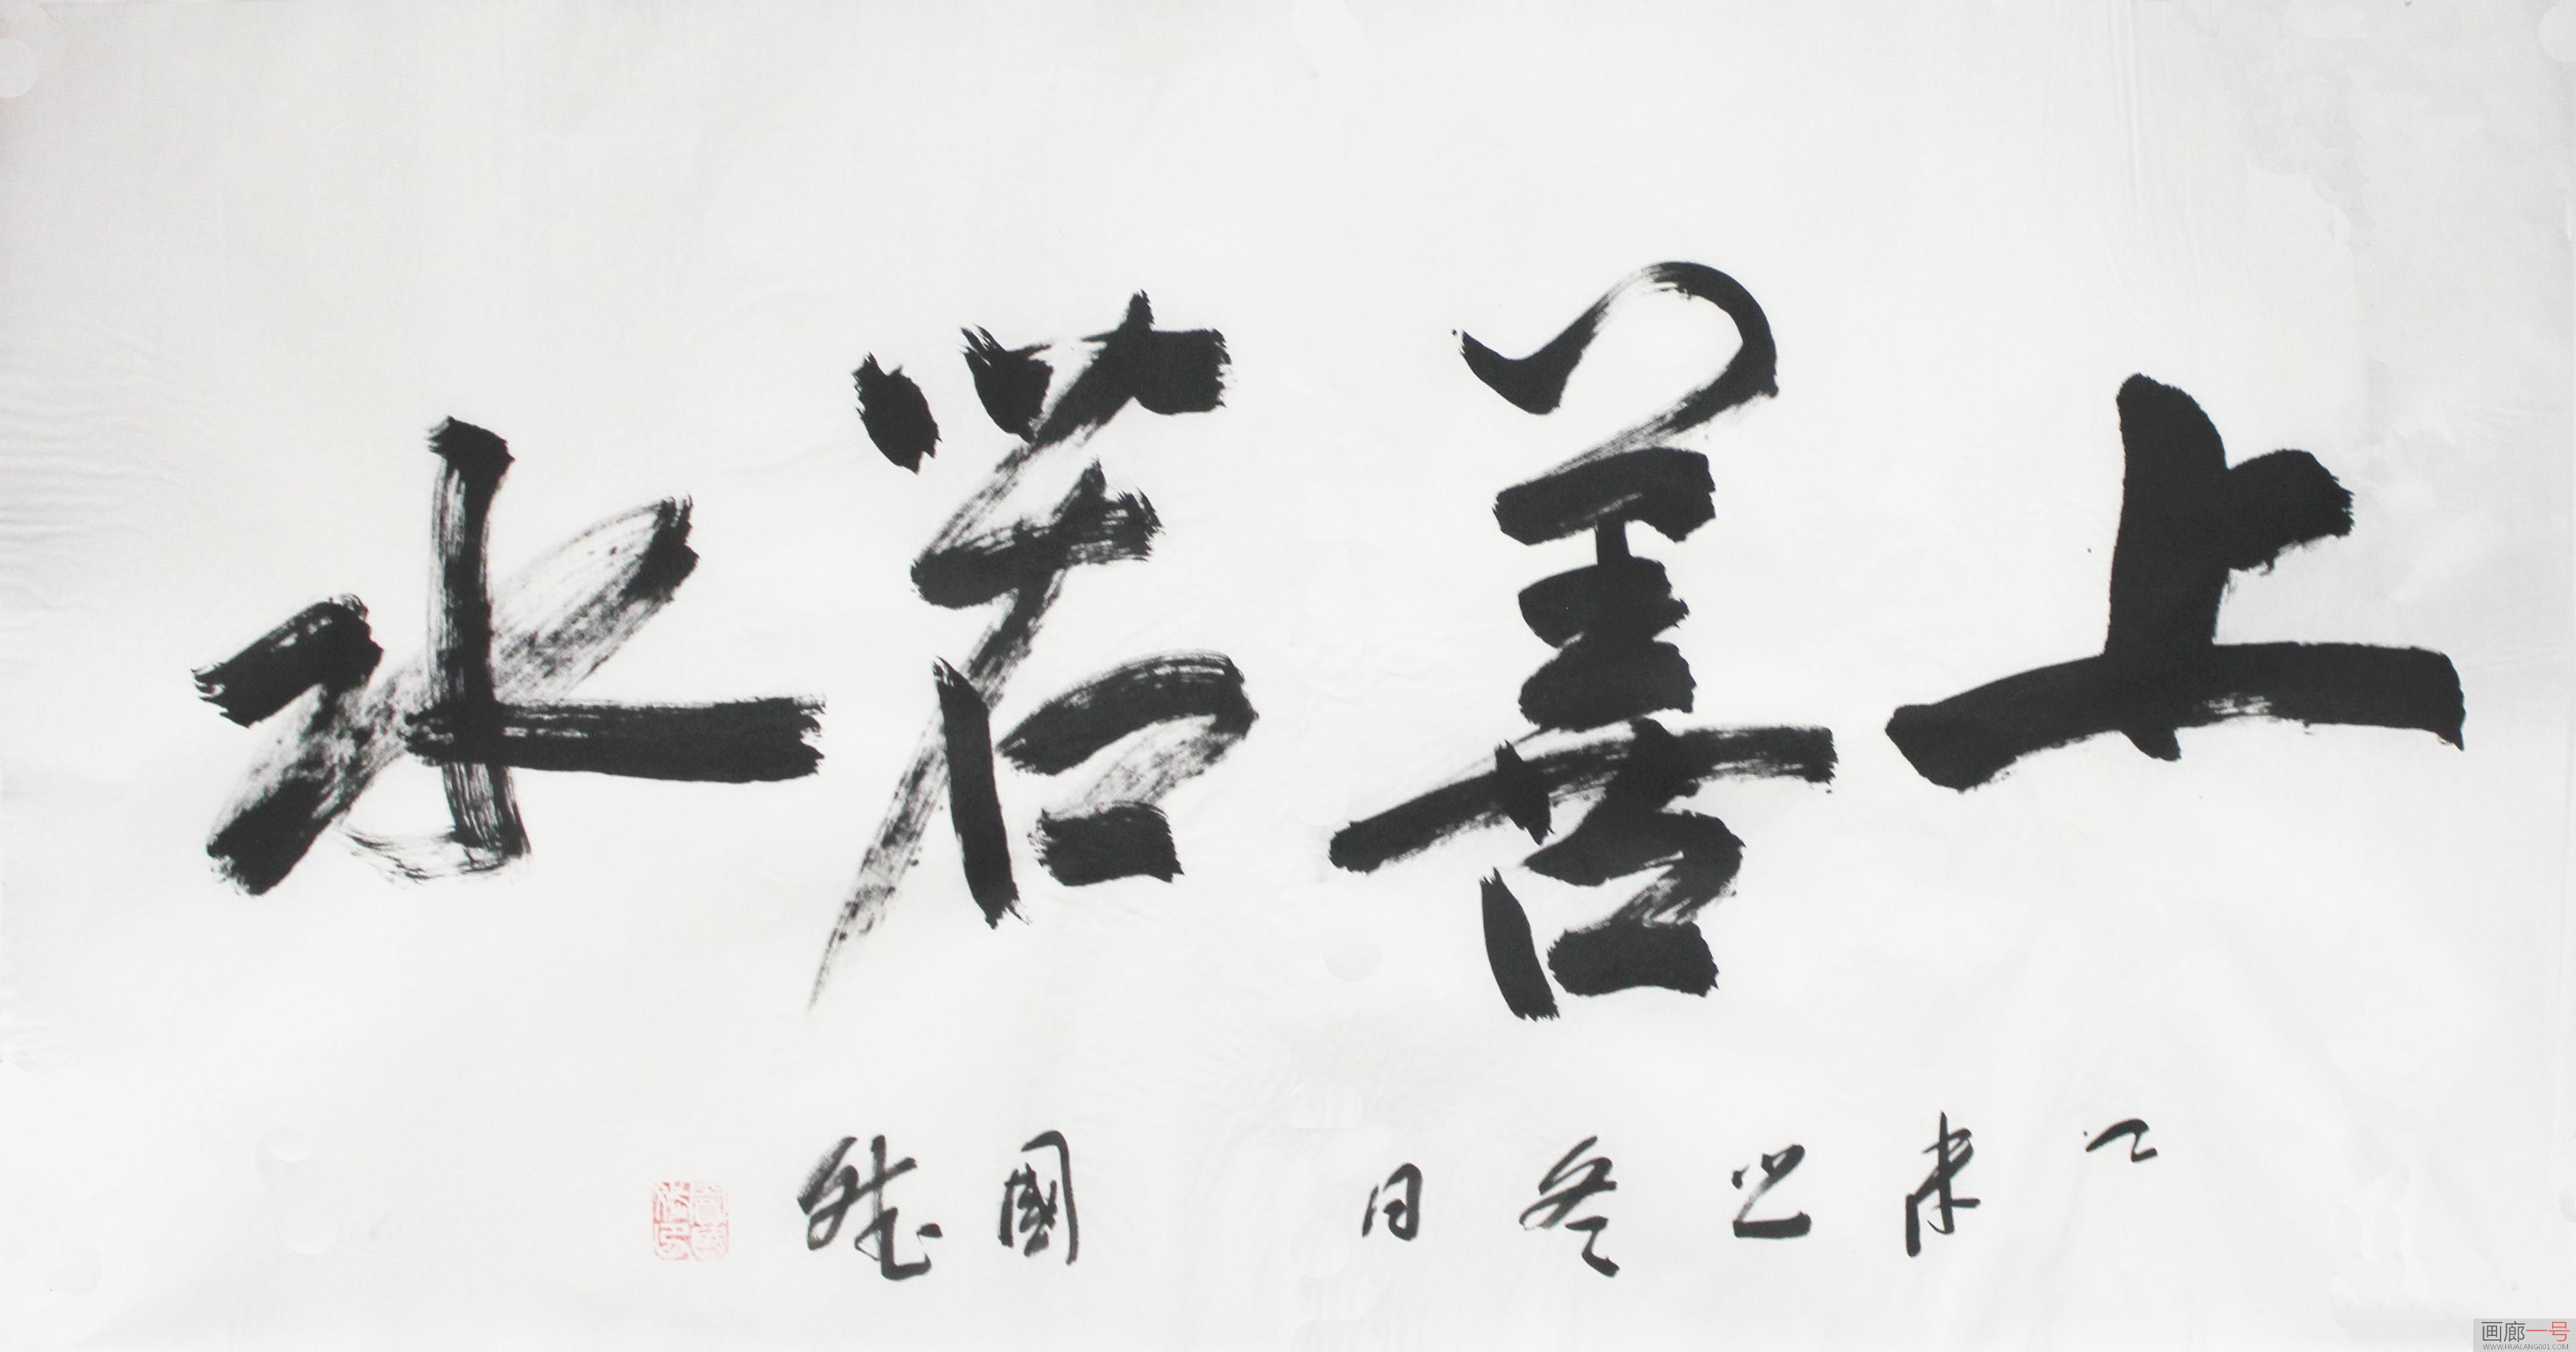 上善若水
乙未之冬日 國
画廊一号
WWW.HUALANG001.COM